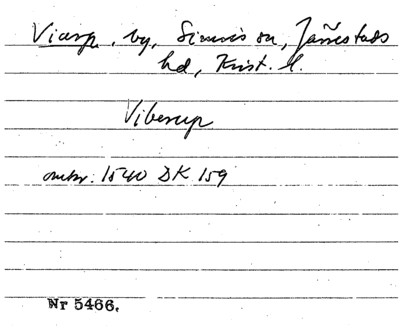 Viarp, by, Simris sn, Järrestads
hd, Krist. l.
Viberup
omkr. 1540 DK 159
Nr 5466.